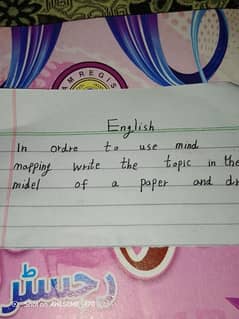 AM REGIS
English
In ordre to use mind
mapping write the topic in the
midel of a paper and dr
رجسٹر
Shot on